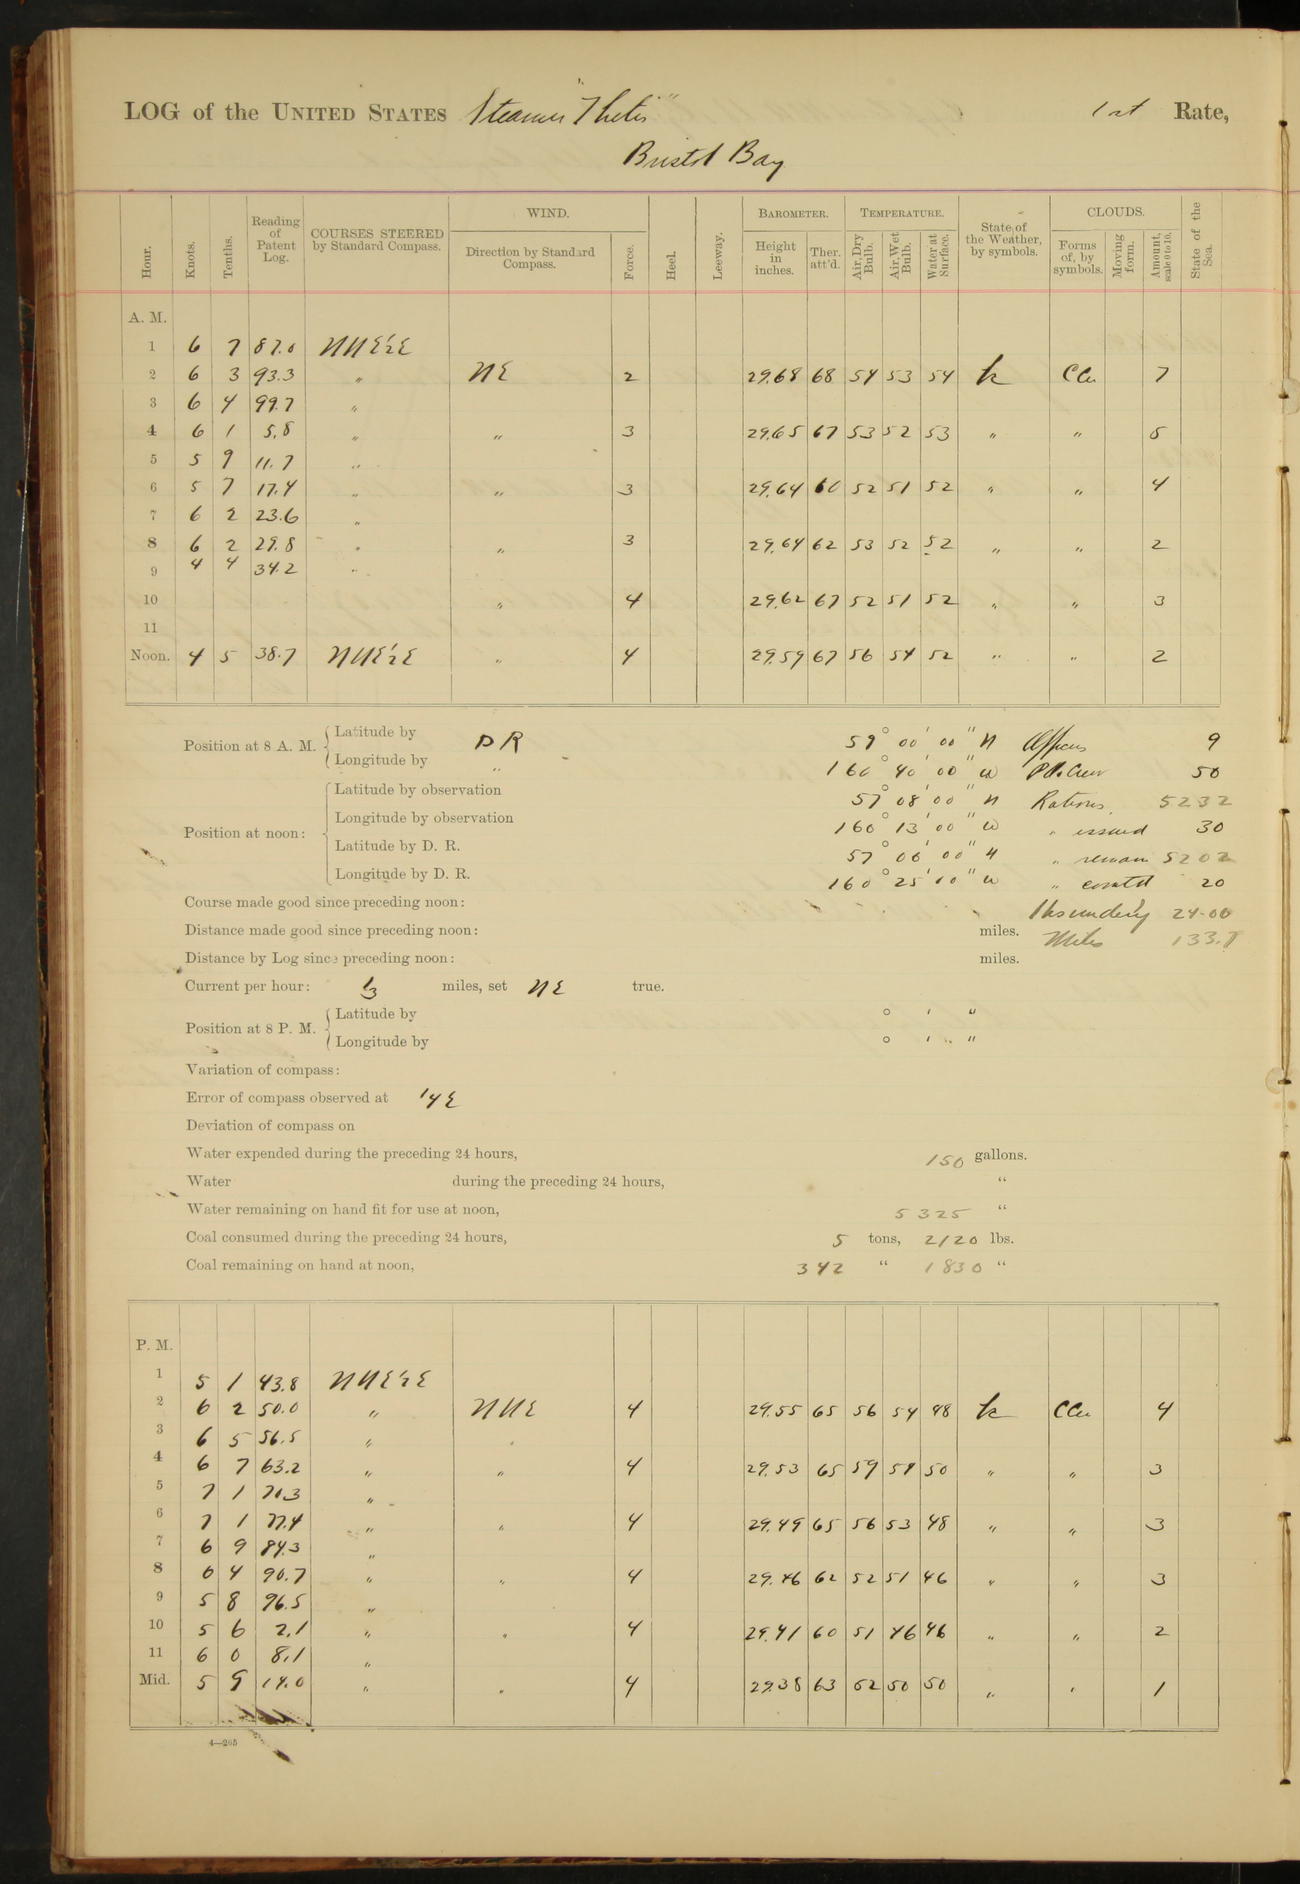 LOG of the UNITED STATES Steamer "Thetis" 1st Rate,
Bristol Bay
Hour. Knots. Tenths. Reading of Patent Log. COURSES STEERED by Standard Compass. WIND. Direction by Standard Compass. Force. Heel. Leeway. BAROMETER. Height in inches. Ther. att'd. TEMPERATURE. Air, Dry Bulb. Air, Wet Bulb. Water at Surface. State of the Weather, by symbols. CLOUDS. Forms of, by symbols. Moving form. Amount, scale 0 to 10. State of the Sea.
A. M.
1 6 7 87.0 NNE½E
2 6 3 93.3 " NE 2 29.68 68 54 53 54 bc CCu 7
3 6 4 99.7 "
4 6 1 5.8 " " 3 29.65 67 53 52 53 " " 5
5 5 9 11.7 "
6 5 7 17.4 " " 3 29.64 60 52 51 52 " " 4
7 6 2 23.6 "
8 6 2 29.8 " " 3 29.64 62 53 52 52 " " 2
9 4 4 34.2 "
10 " 4 29.62 67 52 51 52 " " 3
11
Noon. 4 5 38.7 NNE½E " 4 29.59 67 56 54 52 " " 2
Position at 8 A. M. Latitude by DR 57° 00' 00" N Officers 9
Longitude by " 160° 40' 00" W P.O. Crew 50
Position at noon: Latitude by observation 57° 08' 00" N Rations 5232
Longitude by observation 160° 13' 00" W " issued 30
Latitude by D. R. 57° 06' 00" N " remain 5202
Longitude by D. R. 160° 25' 00" W " comtd 20
Course made good since preceding noon: Hrs underway 24-00
Distance made good since preceding noon: miles. Miles 133.7
Distance by Log since preceding noon: miles.
Current per hour: ⅓ miles, set NE true.
Position at 8 P. M. Latitude by ° ' "
Longitude by ° ' "
Variation of compass:
Error of compass observed at ¼ E
Deviation of compass on
Water expended during the preceding 24 hours, 150 gallons.
Water during the preceding 24 hours, "
Water remaining on hand fit for use at noon, 5325 "
Coal consumed during the preceding 24 hours, 5 tons, 2120 lbs.
Coal remaining on hand at noon, 342 " 1830 "
P. M.
1 5 1 43.8 NNE½E
2 6 2 50.0 " NNE 4 29.55 65 56 54 48 bc CCu 4
3 6 5 56.5 "
4 6 7 63.2 " " 4 29.53 65 59 57 50 " " 3
5 7 1 70.3 "
6 7 1 77.4 " " 4 29.49 65 56 53 48 " " 3
7 6 9 84.3 "
8 6 4 90.7 " " 4 29.46 62 52 51 46 " " 3
9 5 8 96.5 "
10 5 6 2.1 " " 4 29.41 60 51 46 46 " " 2
11 6 0 8.1 "
Mid. 5 9 14.0 " " 4 29.38 63 52 50 50 " " 1
4—205